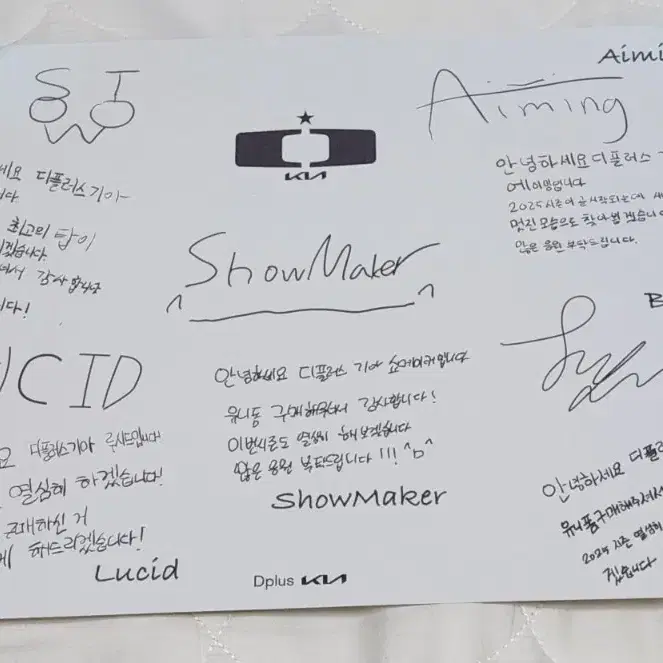 SIWOO
세요 디플러스기아
니다
최고의 탑이
되겠습니다
셔서 감사합니다
니다!
KIA
ShowMaker
안녕하세요 디플러스 기아 쇼메이커입니다
유니폼 구매해주셔서 감사합니다!
이번시즌도 열심히 해보겠습니다
많은 응원 부탁드립니다!!! ^b^
ShowMaker
Dplus KIA
Aimi
Aiming
안녕하세요 디플러스 기
에이밍입니다
2025시즌이 곧 시작되는데 새
멋진 모습으로 찾아뵙겠습니다
많은 응원 부탁드립니다.
UCID
요 디플러스기아 루시드입니다!
열심히 하겠습니다!
구매하신 거
게 해드리겠습니다!
Lucid
B
안녕하세요 디플러
유니폼구매해주셔서
2025 시즌 열심히
겠습니다